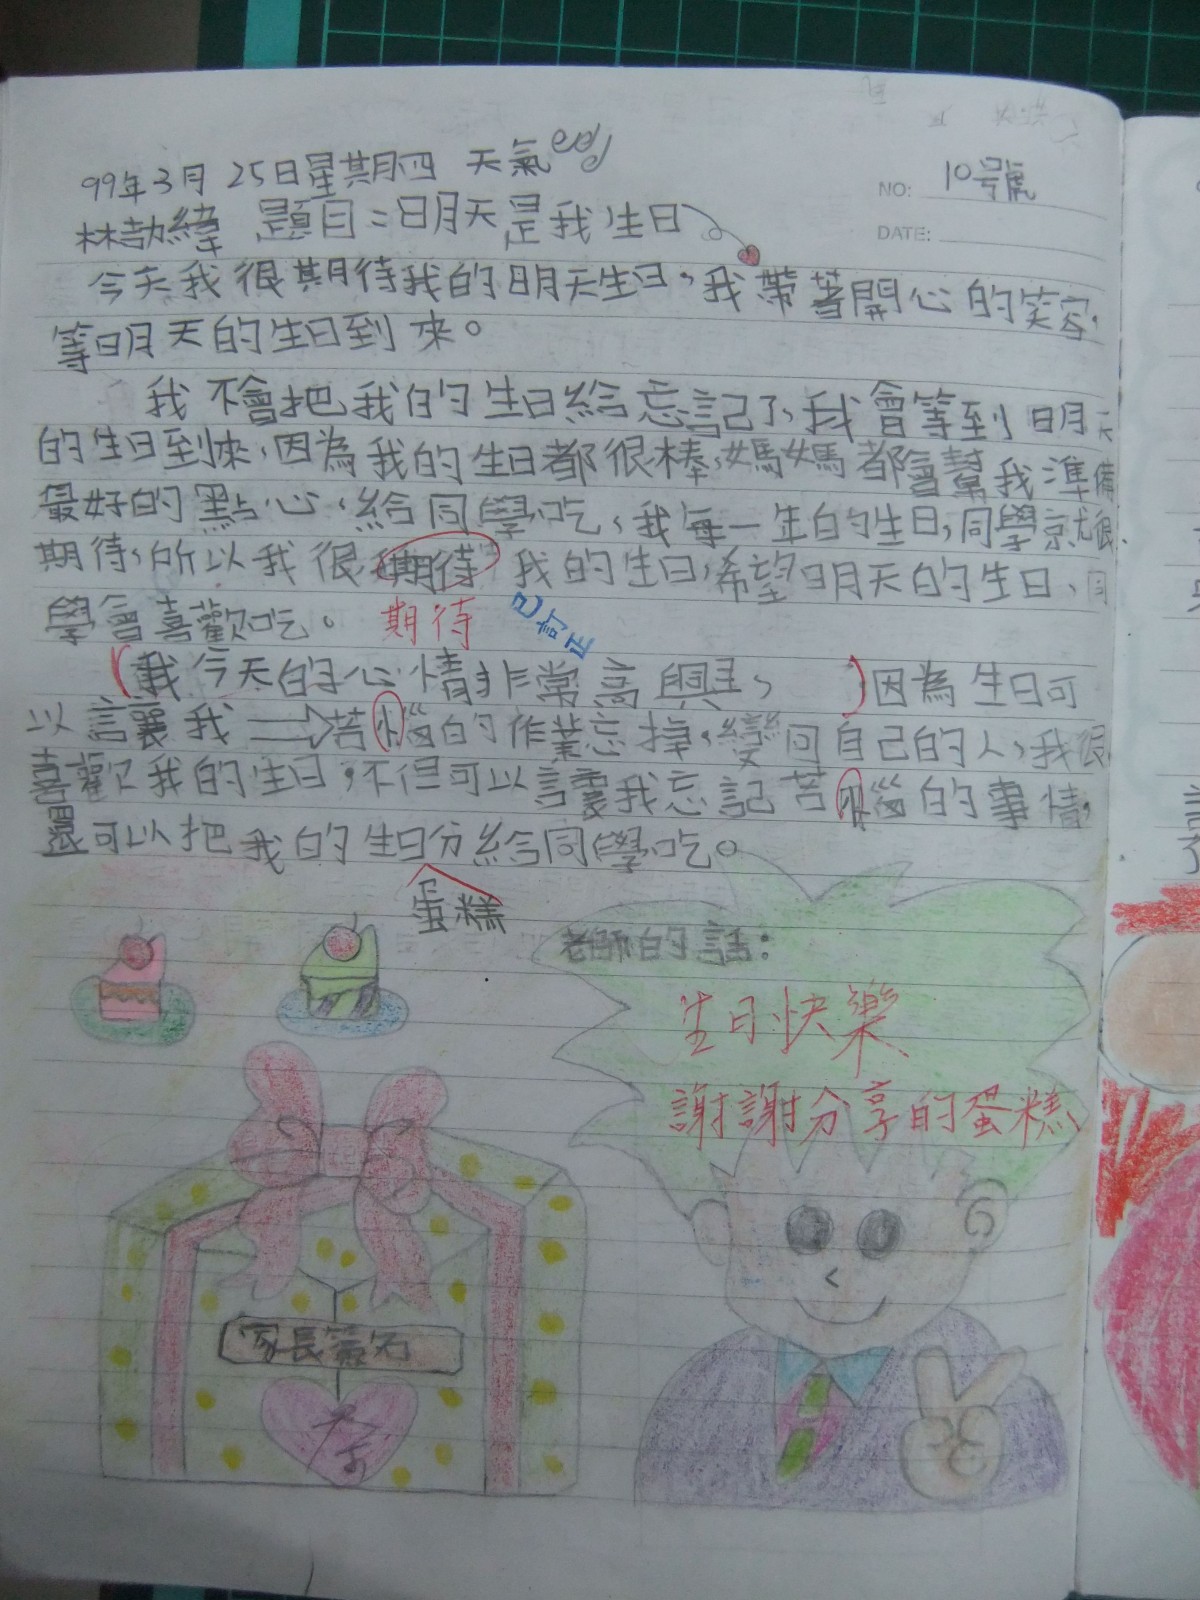 99年3月25日星期四 天氣
NO: 10號
林 緯 題目：明天是我生日
DATE:
今天我很期待我的明天生日，我帶著開心的笑容，
等明天的生日到來。
我不會把我的生日給忘記了，我會等到明天
的生日到來，因為我的生日都很棒，媽媽都會幫我準備
最好的點心，給同學吃，我每一年的生日，同學就很
期待，所以我很期待我的生日，希望明天的生日，同
學會喜歡吃。 期待 已訂正
（我今天的心情非常高興， ）因為生日可
以讓我→苦惱的作業忘掉，變回自己的人，我很
喜歡我的生日，不但可以讓我忘記苦惱的事情，
還可以把我的生日分給同學吃。
蛋糕
老師的話：
生日快樂
謝謝分享的蛋糕
家長簽名